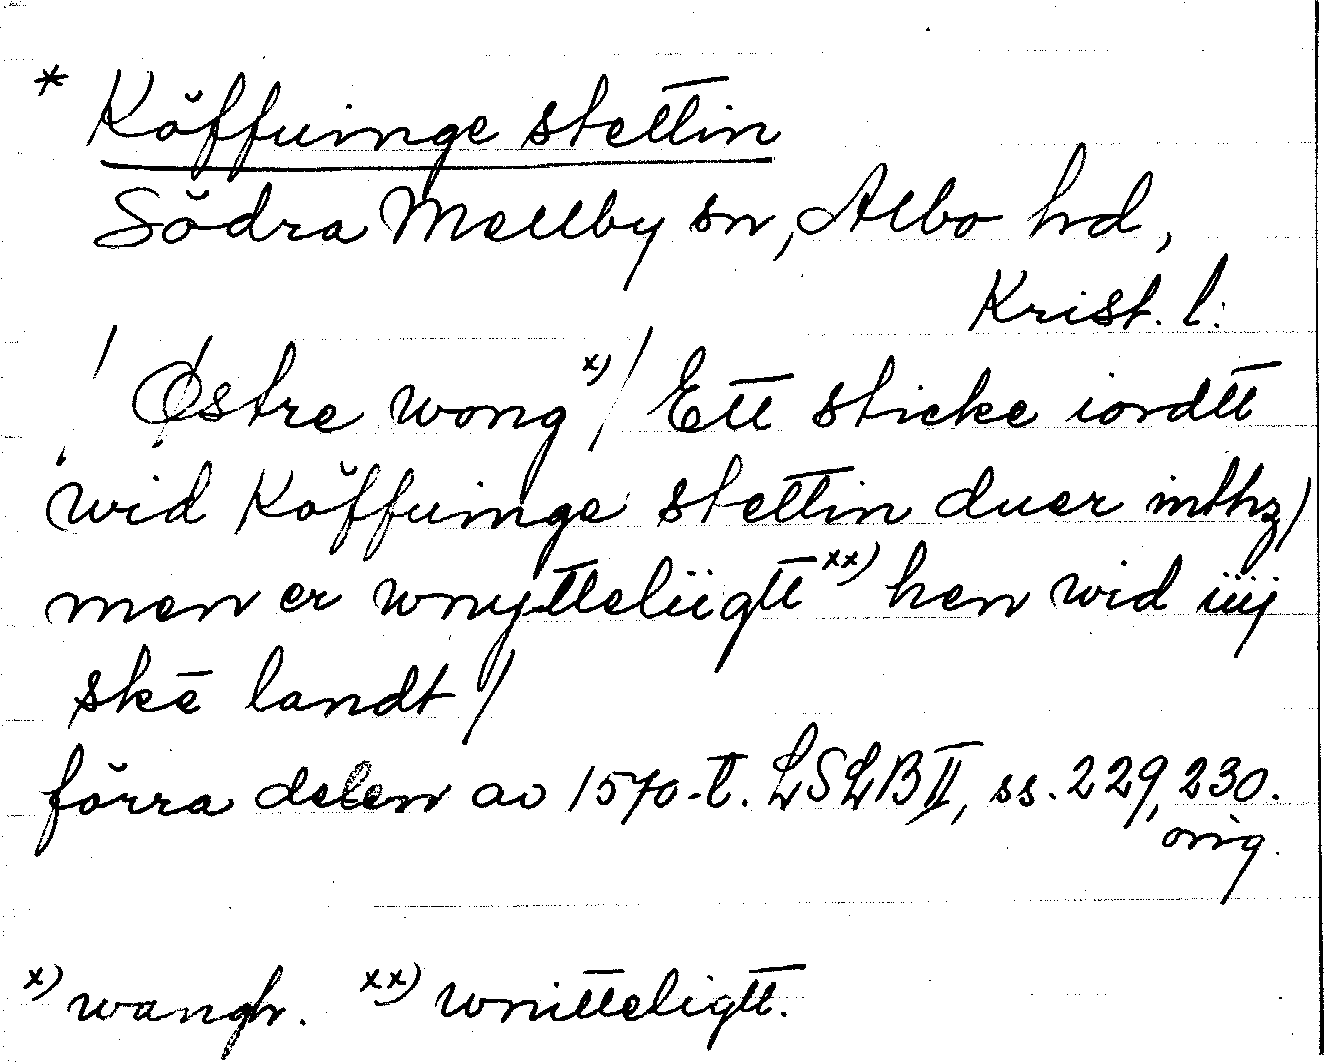 * Köffuinge stettin
Södra Mellby sn, Albo hd,
Krist. l.
/ Østre wong x) / Ett sticke iordtt
wid Köffuinge stettin duer inthz)
men er wnytteliigtt xx) hen wid iiij
skē landt /
förra delen av 1570-t. LSLB II, ss. 229, 230.
orig.
x) wangh. xx) wnitteligtt.